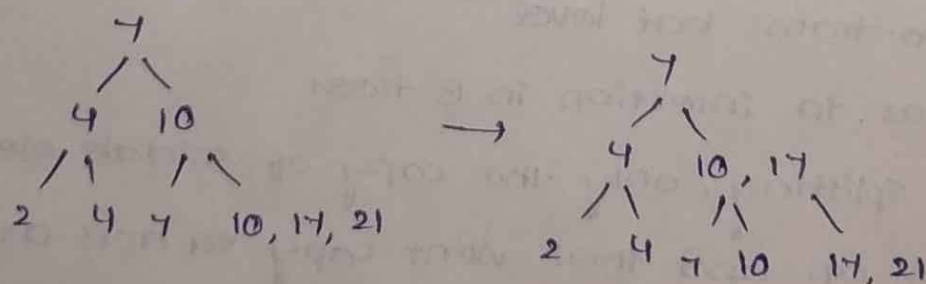 7
4 10
2 4 7 10, 17, 21
→
7
4 10, 17
2 4 7 10 17, 21